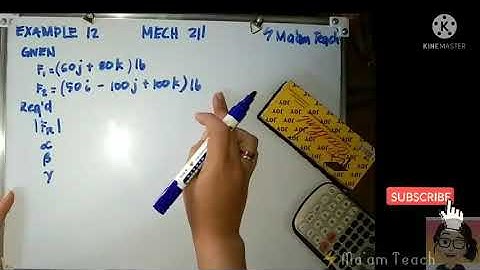 EXAMPLE 12 MECH 211 ⚡Ma'am Teach
GIVEN
F₁ = (60j + 80k) lb
F₂ = (50i - 100j + 100k) lb
Req'd
|FR|
α
β
γ
KINEMASTER
JOY
SUBSCRIBE
⚡Ma'am Teach